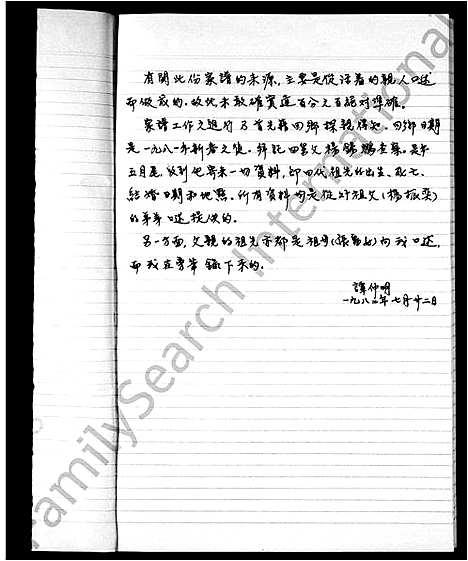 有關此份家譜的來源,主要是從活着的親人口述
而做成的。故此未敢確實這百分之百絕對準確。
家譜工作之進行乃首先藉回鄉探親得知。回鄉日期
是一九八一年新春之後。拜託四叔父楊錦鵬查尋。是年
五月尾,收到他寄來一切資料,即四代祖先的出生、死亡、
結婚日期和地點。所有資料均是從外祖父(楊振奕)
的弟弟口述提供的。
另一方面,父親的祖先亦都是祖母(張 女)向我口述,
而我在旁筆錄下來的。
譚仲明
一九八二年七月廿二日
FamilySearch International